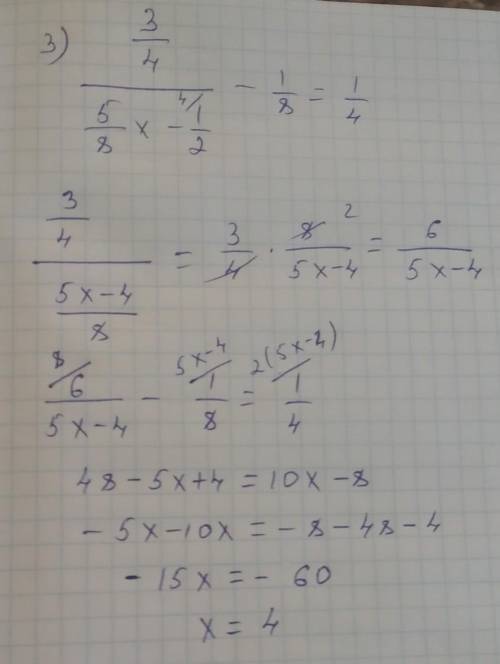 3) (3/4)/(5/8 x - ⁴/ 1/2) - 1/8 = 1/4
(3/4)/((5x-4)/8) = 3/4 · 8 2/(5x-4) = 6/(5x-4)
8/ 6/(5x-4) - 5x-4/ 1/8 = 2(5x-4)/ 1/4
48-5x+4=10x-8
-5x-10x=-8-48-4
-15x=-60
x=4